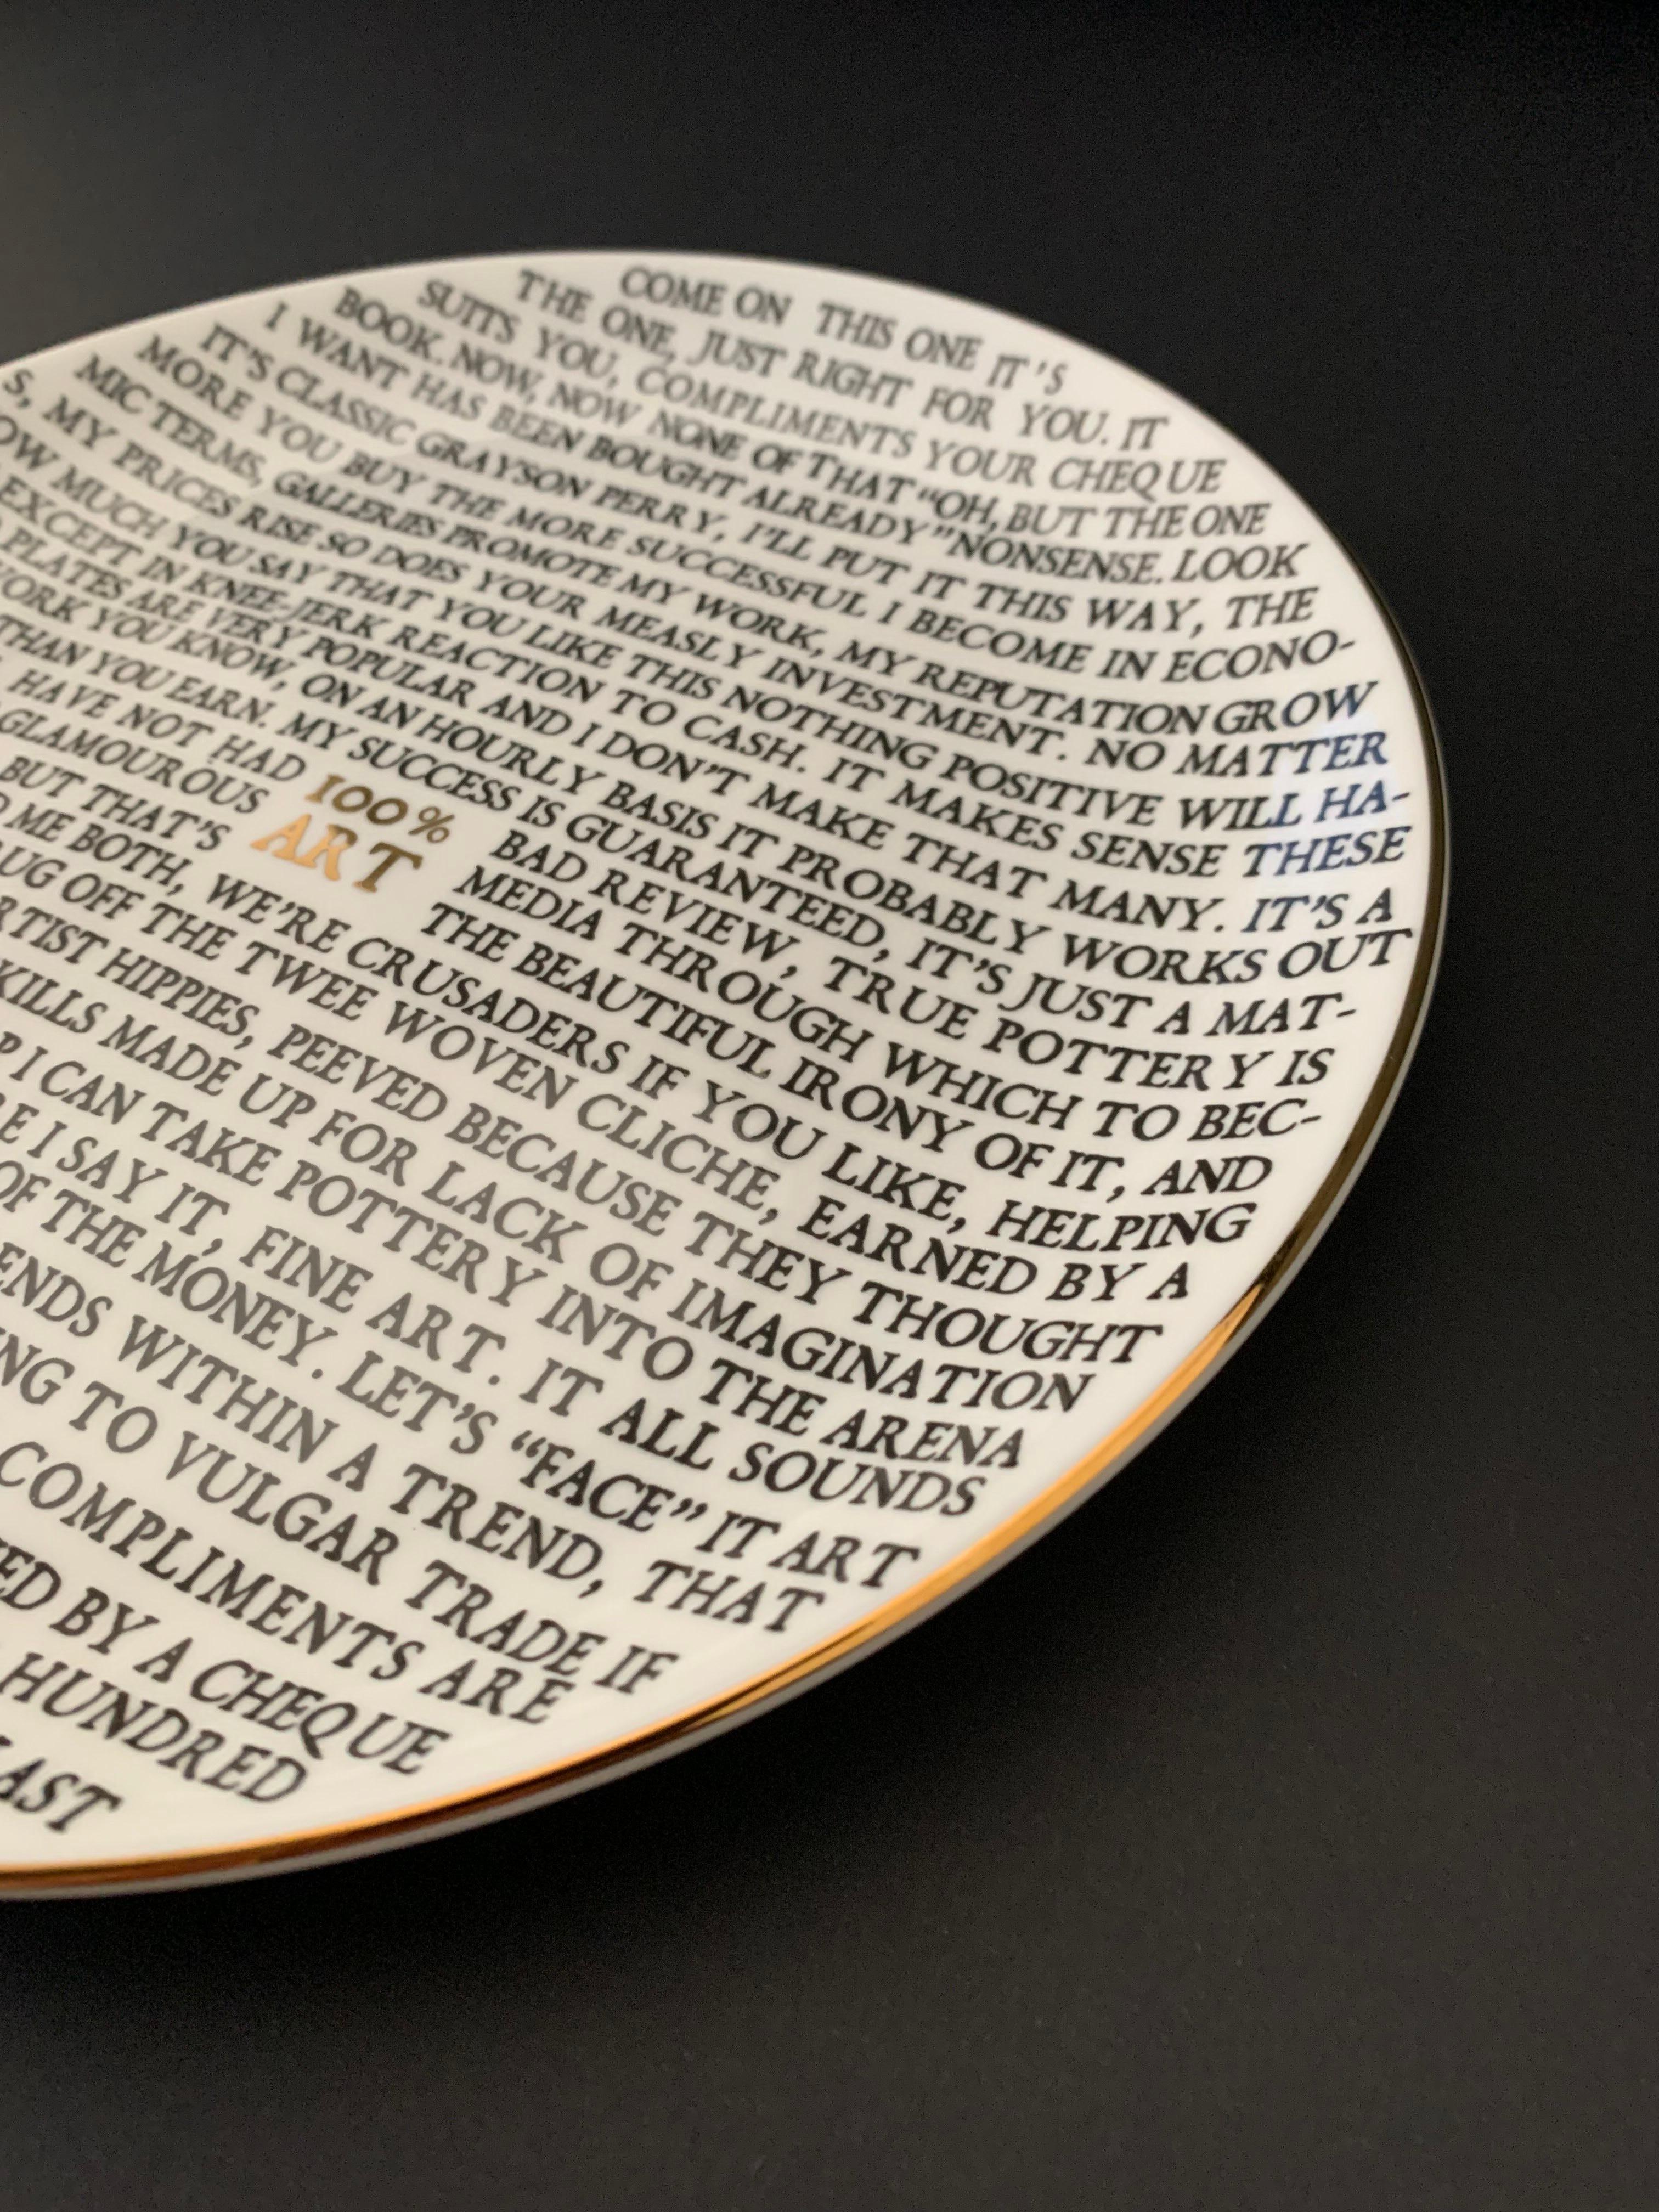 COME ON THIS ONE IT'S
THE ONE, JUST RIGHT FOR YOU. IT
SUITS YOU, COMPLIMENTS YOUR CHEQUE
BOOK. NOW, NOW NONE OF THAT "OH, BUT THE ONE
I WANT HAS BEEN BOUGHT ALREADY" NONSENSE. LOOK
IT'S CLASSIC GRAYSON PERRY, I'LL PUT IT THIS WAY, THE
MORE YOU BUY THE MORE SUCCESSFUL I BECOME IN ECONO-
MIC TERMS, GALLERIES PROMOTE MY WORK, MY REPUTATION GROW
S, MY PRICES RISE SO DOES YOUR MEASLY INVESTMENT. NO MATTER
OW MUCH YOU SAY THAT YOU LIKE THIS NOTHING POSITIVE WILL HA-
EXCEPT IN KNEE-JERK REACTION TO CASH. IT MAKES SENSE THESE
PLATES ARE VERY POPULAR AND I DON'T MAKE THAT MANY. IT'S A
ORK YOU KNOW, ON AN HOURLY BASIS IT PROBABLY WORKS OUT
THAN YOU EARN. MY SUCCESS IS GUARANTEED, IT'S JUST A MAT-
HAVE NOT HAD 100% BAD REVIEW, TRUE POTTERY IS
GLAMOUROUS ART MEDIA THROUGH WHICH TO BEC-
BUT THAT'S THE BEAUTIFUL IRONY OF IT, AND
ME BOTH, WE'RE CRUSADERS IF YOU LIKE, HELPING
UG OFF THE TWEE WOVEN CLICHE, EARNED BY A
RTIST HIPPIES, PEEVED BECAUSE THEY THOUGHT
KILLS MADE UP FOR LACK OF IMAGINATION
P I CAN TAKE POTTERY INTO THE ARENA
E I SAY IT, FINE ART. IT ALL SOUNDS
OF THE MONEY. LET'S "FACE" IT ART
ENDS WITHIN A TREND, THAT
NG TO VULGAR TRADE IF
COMPLIMENTS ARE
ED BY A CHEQUE
HUNDRED
AST